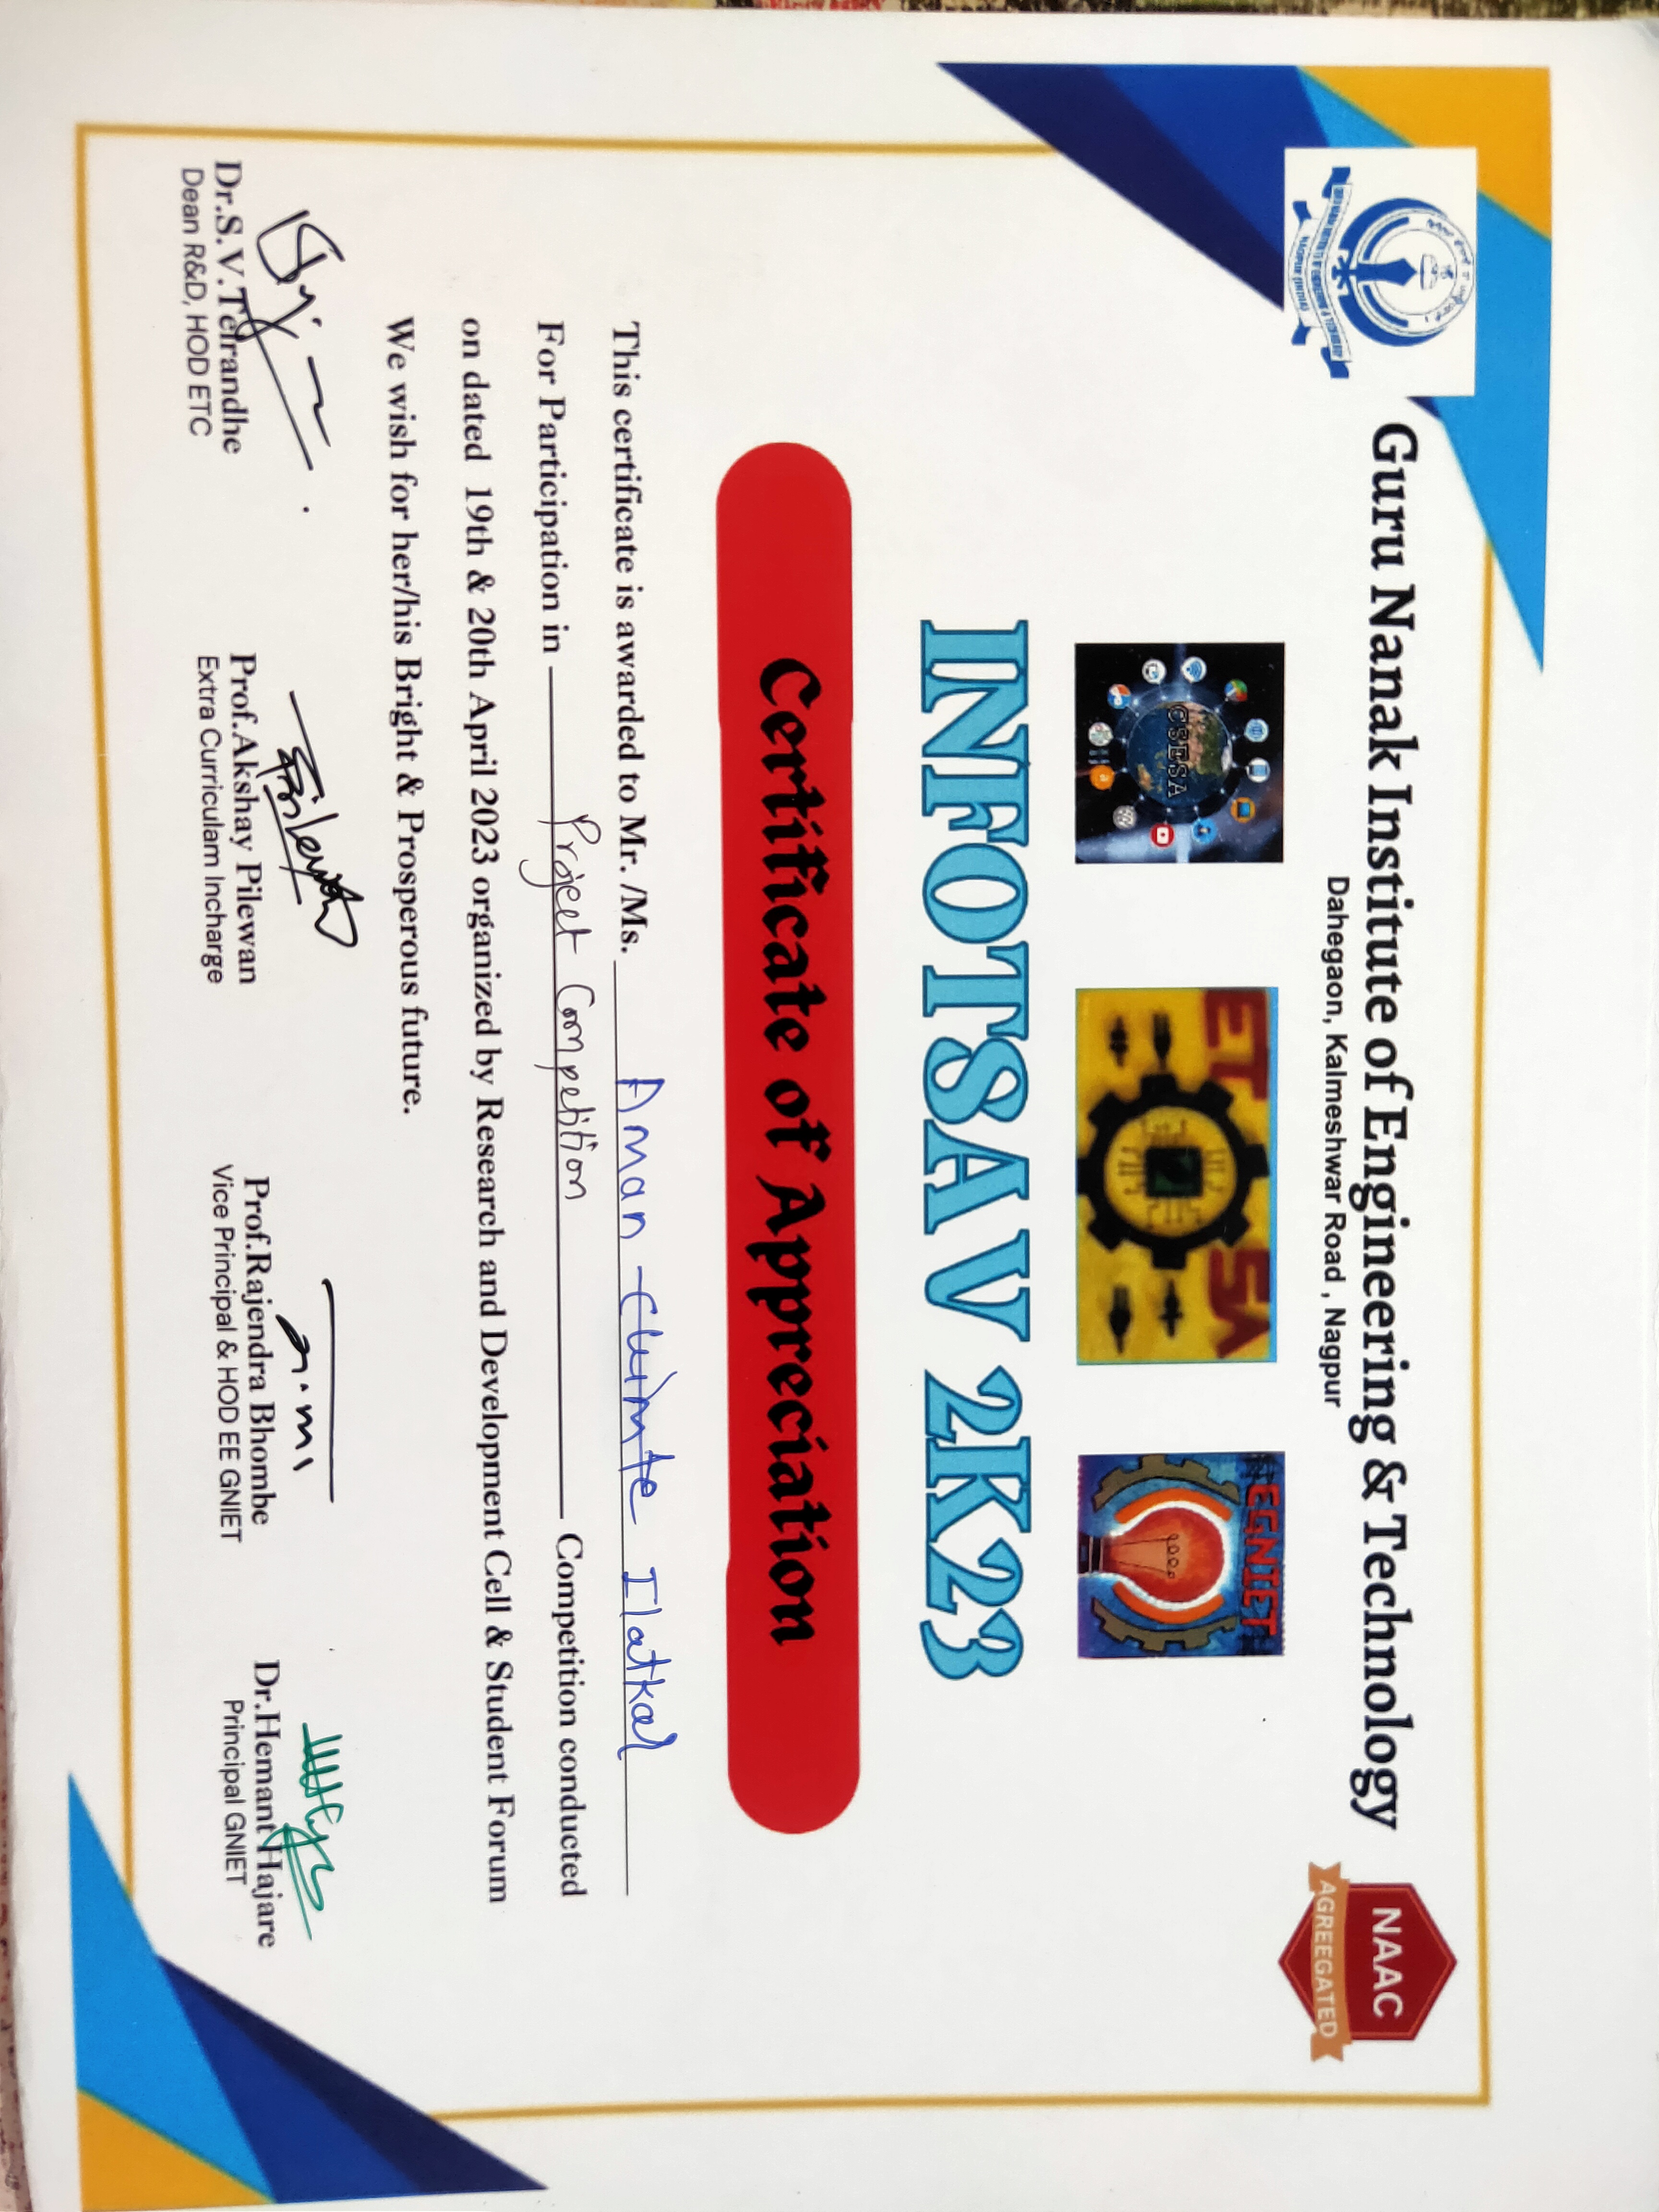 Guru Nanak Institute of Engineering & Technology
Dahegaon, Kalmeshwar Road , Nagpur
NAAC
AGREEGATED
NAGPUR (INDIA)
CSESA
ET SA
EGNIET
INFOTSAV 2K23
Certificate of Appreciation
This certificate is awarded to Mr. /Ms. Aman Ilatkar
For Participation in Project Competition Competition conducted
on dated 19th & 20th April 2023 organized by Research and Development Cell & Student Forum
We wish for her/his Bright & Prosperous future.
Dr.S.V.Tefrandhe
Dean R&D, HOD ETC
Prof.Akshay Pilewan
Extra Curriculam Incharge
Prof.Rajendra Bhombe
Vice Principal & HOD EE GNIET
Dr.Hemant Hajare
Principal GNIET